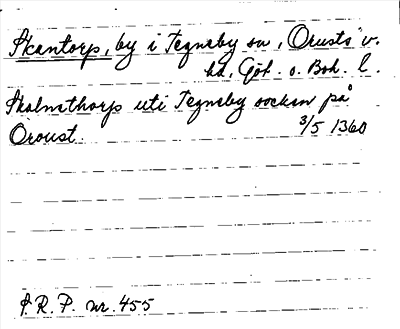 Skantorp, by i Tegneby sn, Orusts v.
hd, Göt. o. Boh. l.
Skalmethorp uti Tegneby socken på
Oroust 3/5 1360
S.R.P. nr. 455